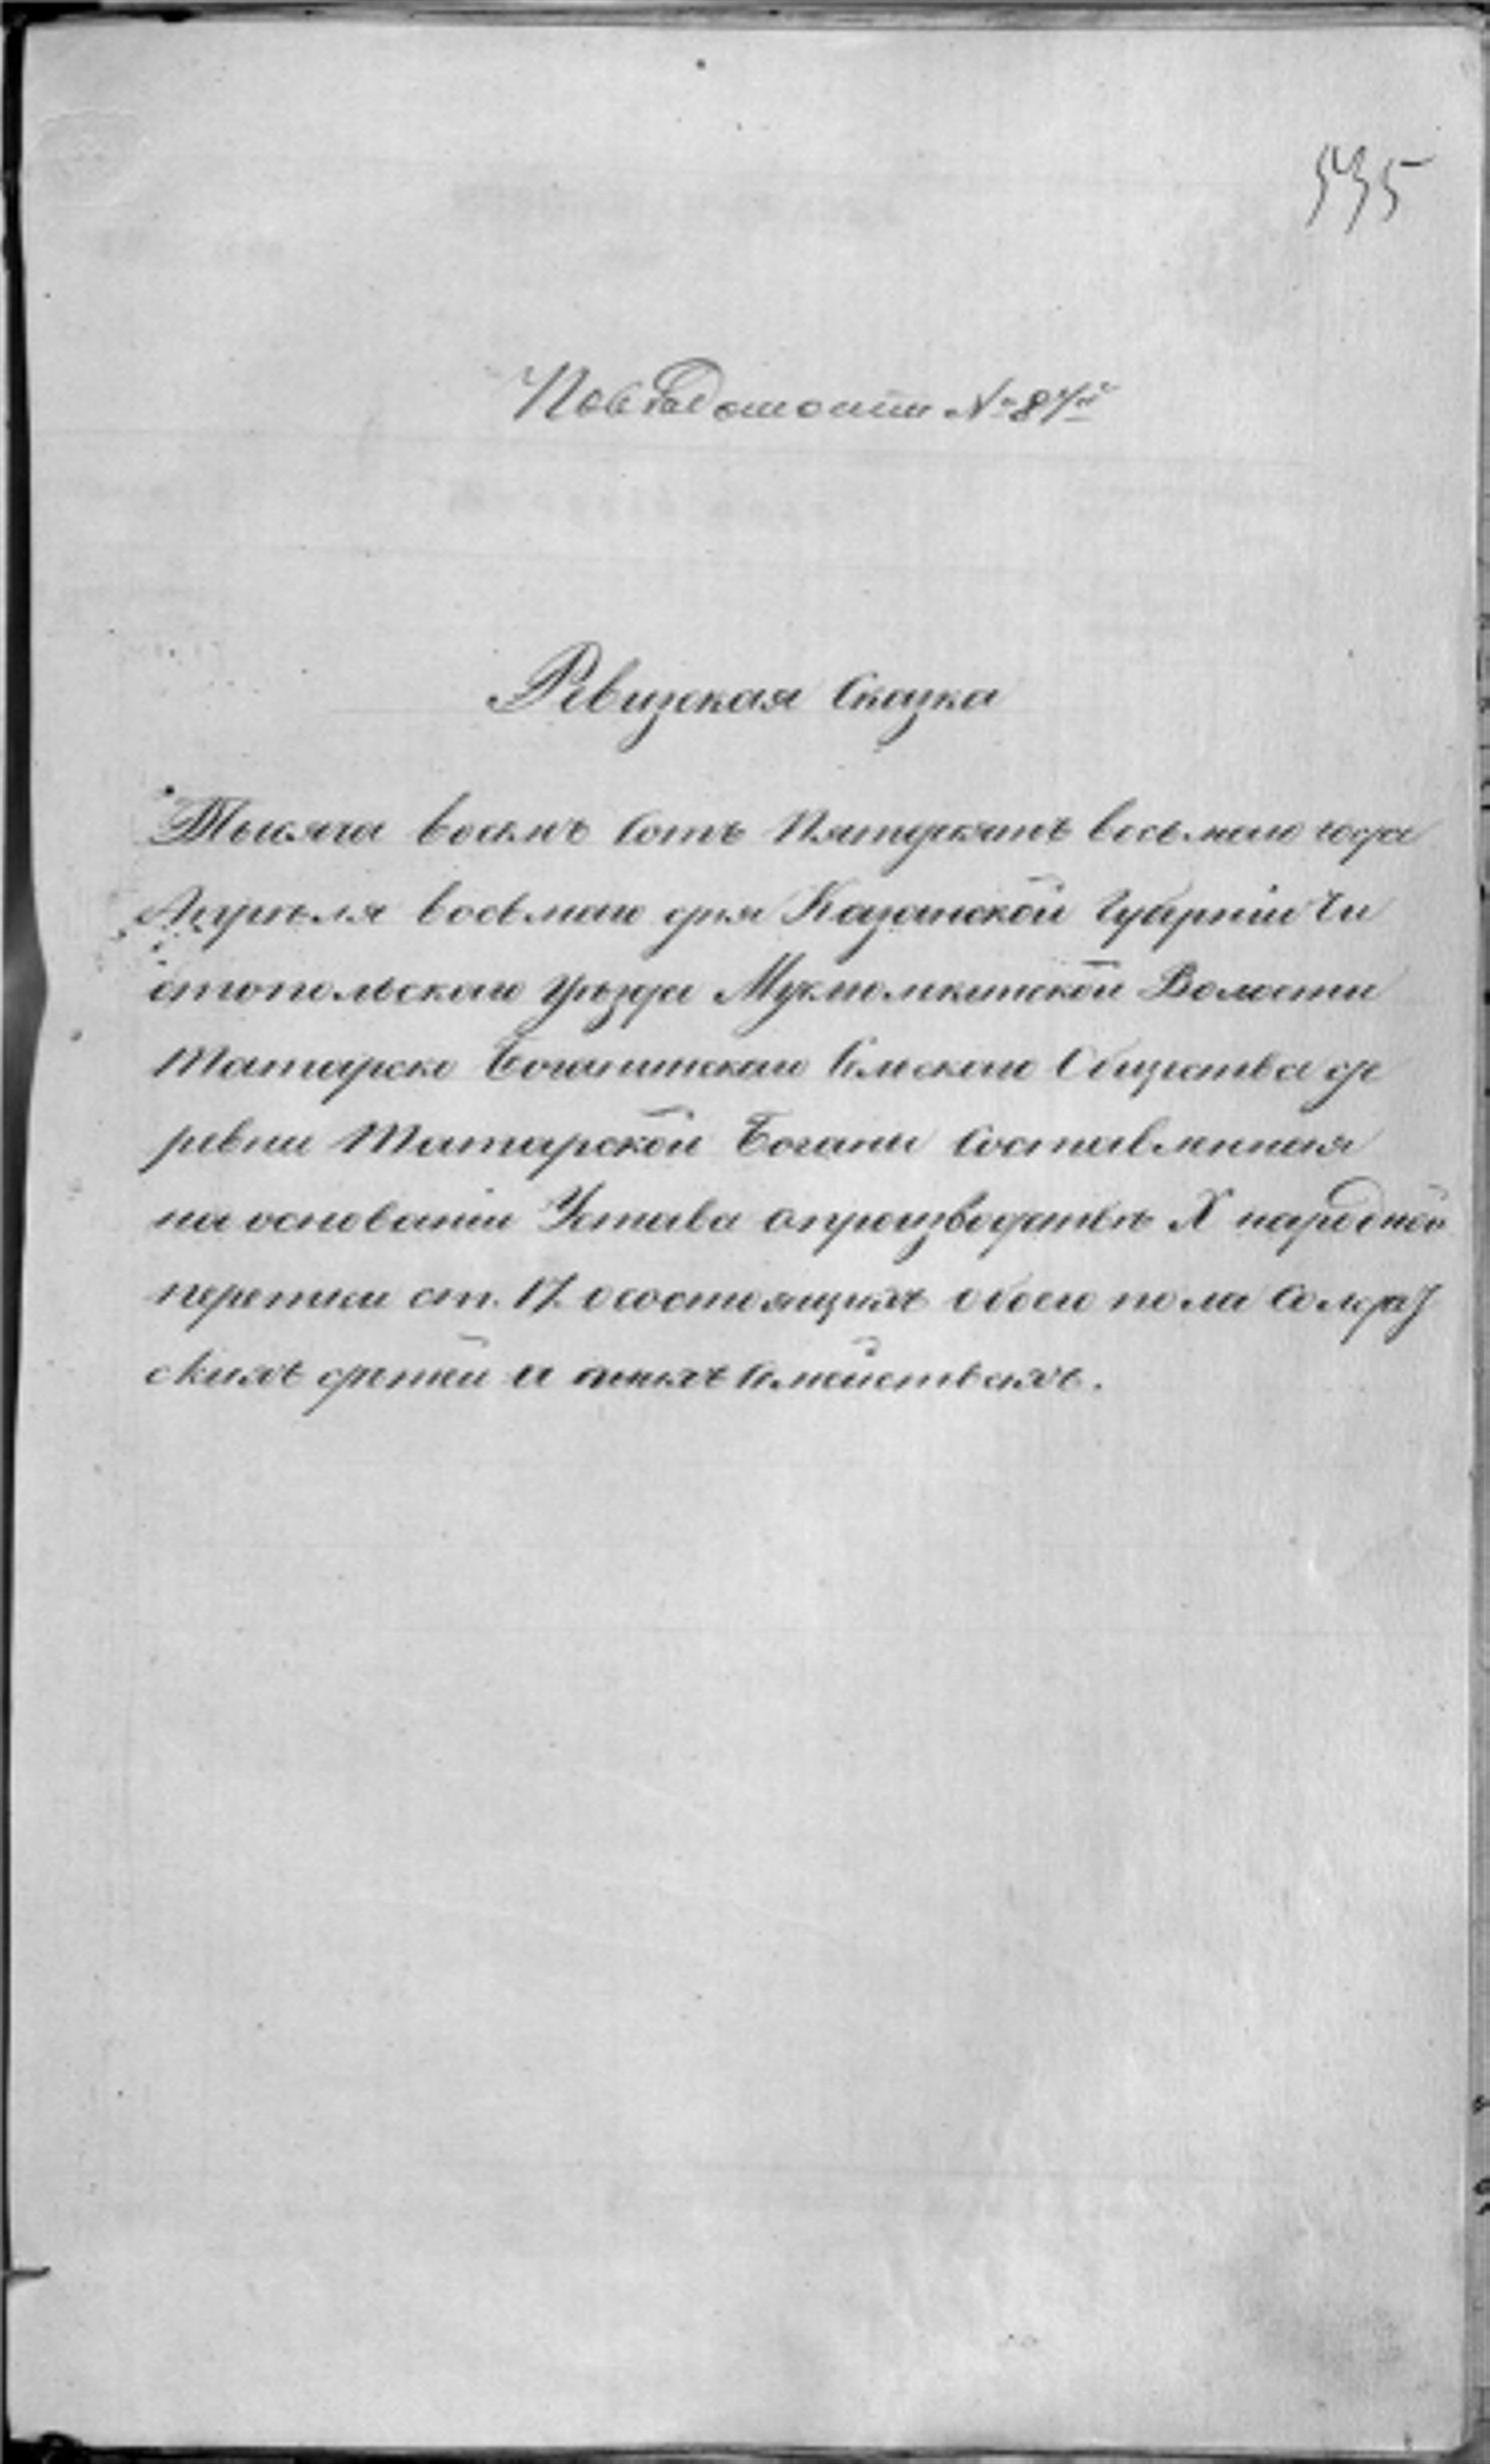 535
По вѣдомости № 84й
Ревизская Сказка
Тысяча восемь сотъ Пятдесятъ восьмаго года
Апрѣля восьмаго дня Казанской Губерніи Чи
стопольскаго уѣзда Мускомлкинской Волости
Татарско Боганинскаго Сельскаго Общества де
ревни Татарской Богани Составленная
на основаніи Устава опроизводствѣ X народной
переписи ст. 17. осостоящихъ обоего пола Солдат
скихъ дѣтей и ихъ семействахъ.